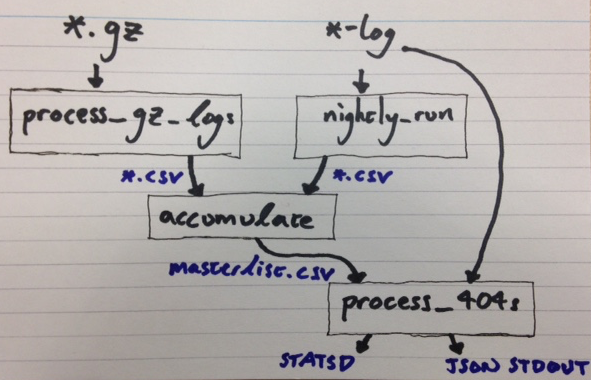 *.gz
*-log
process_gz_logs
nightly_run
*.csv
*.csv
accumulate
masterlist.csv
process_404s
STATSD
JSON STDOUT